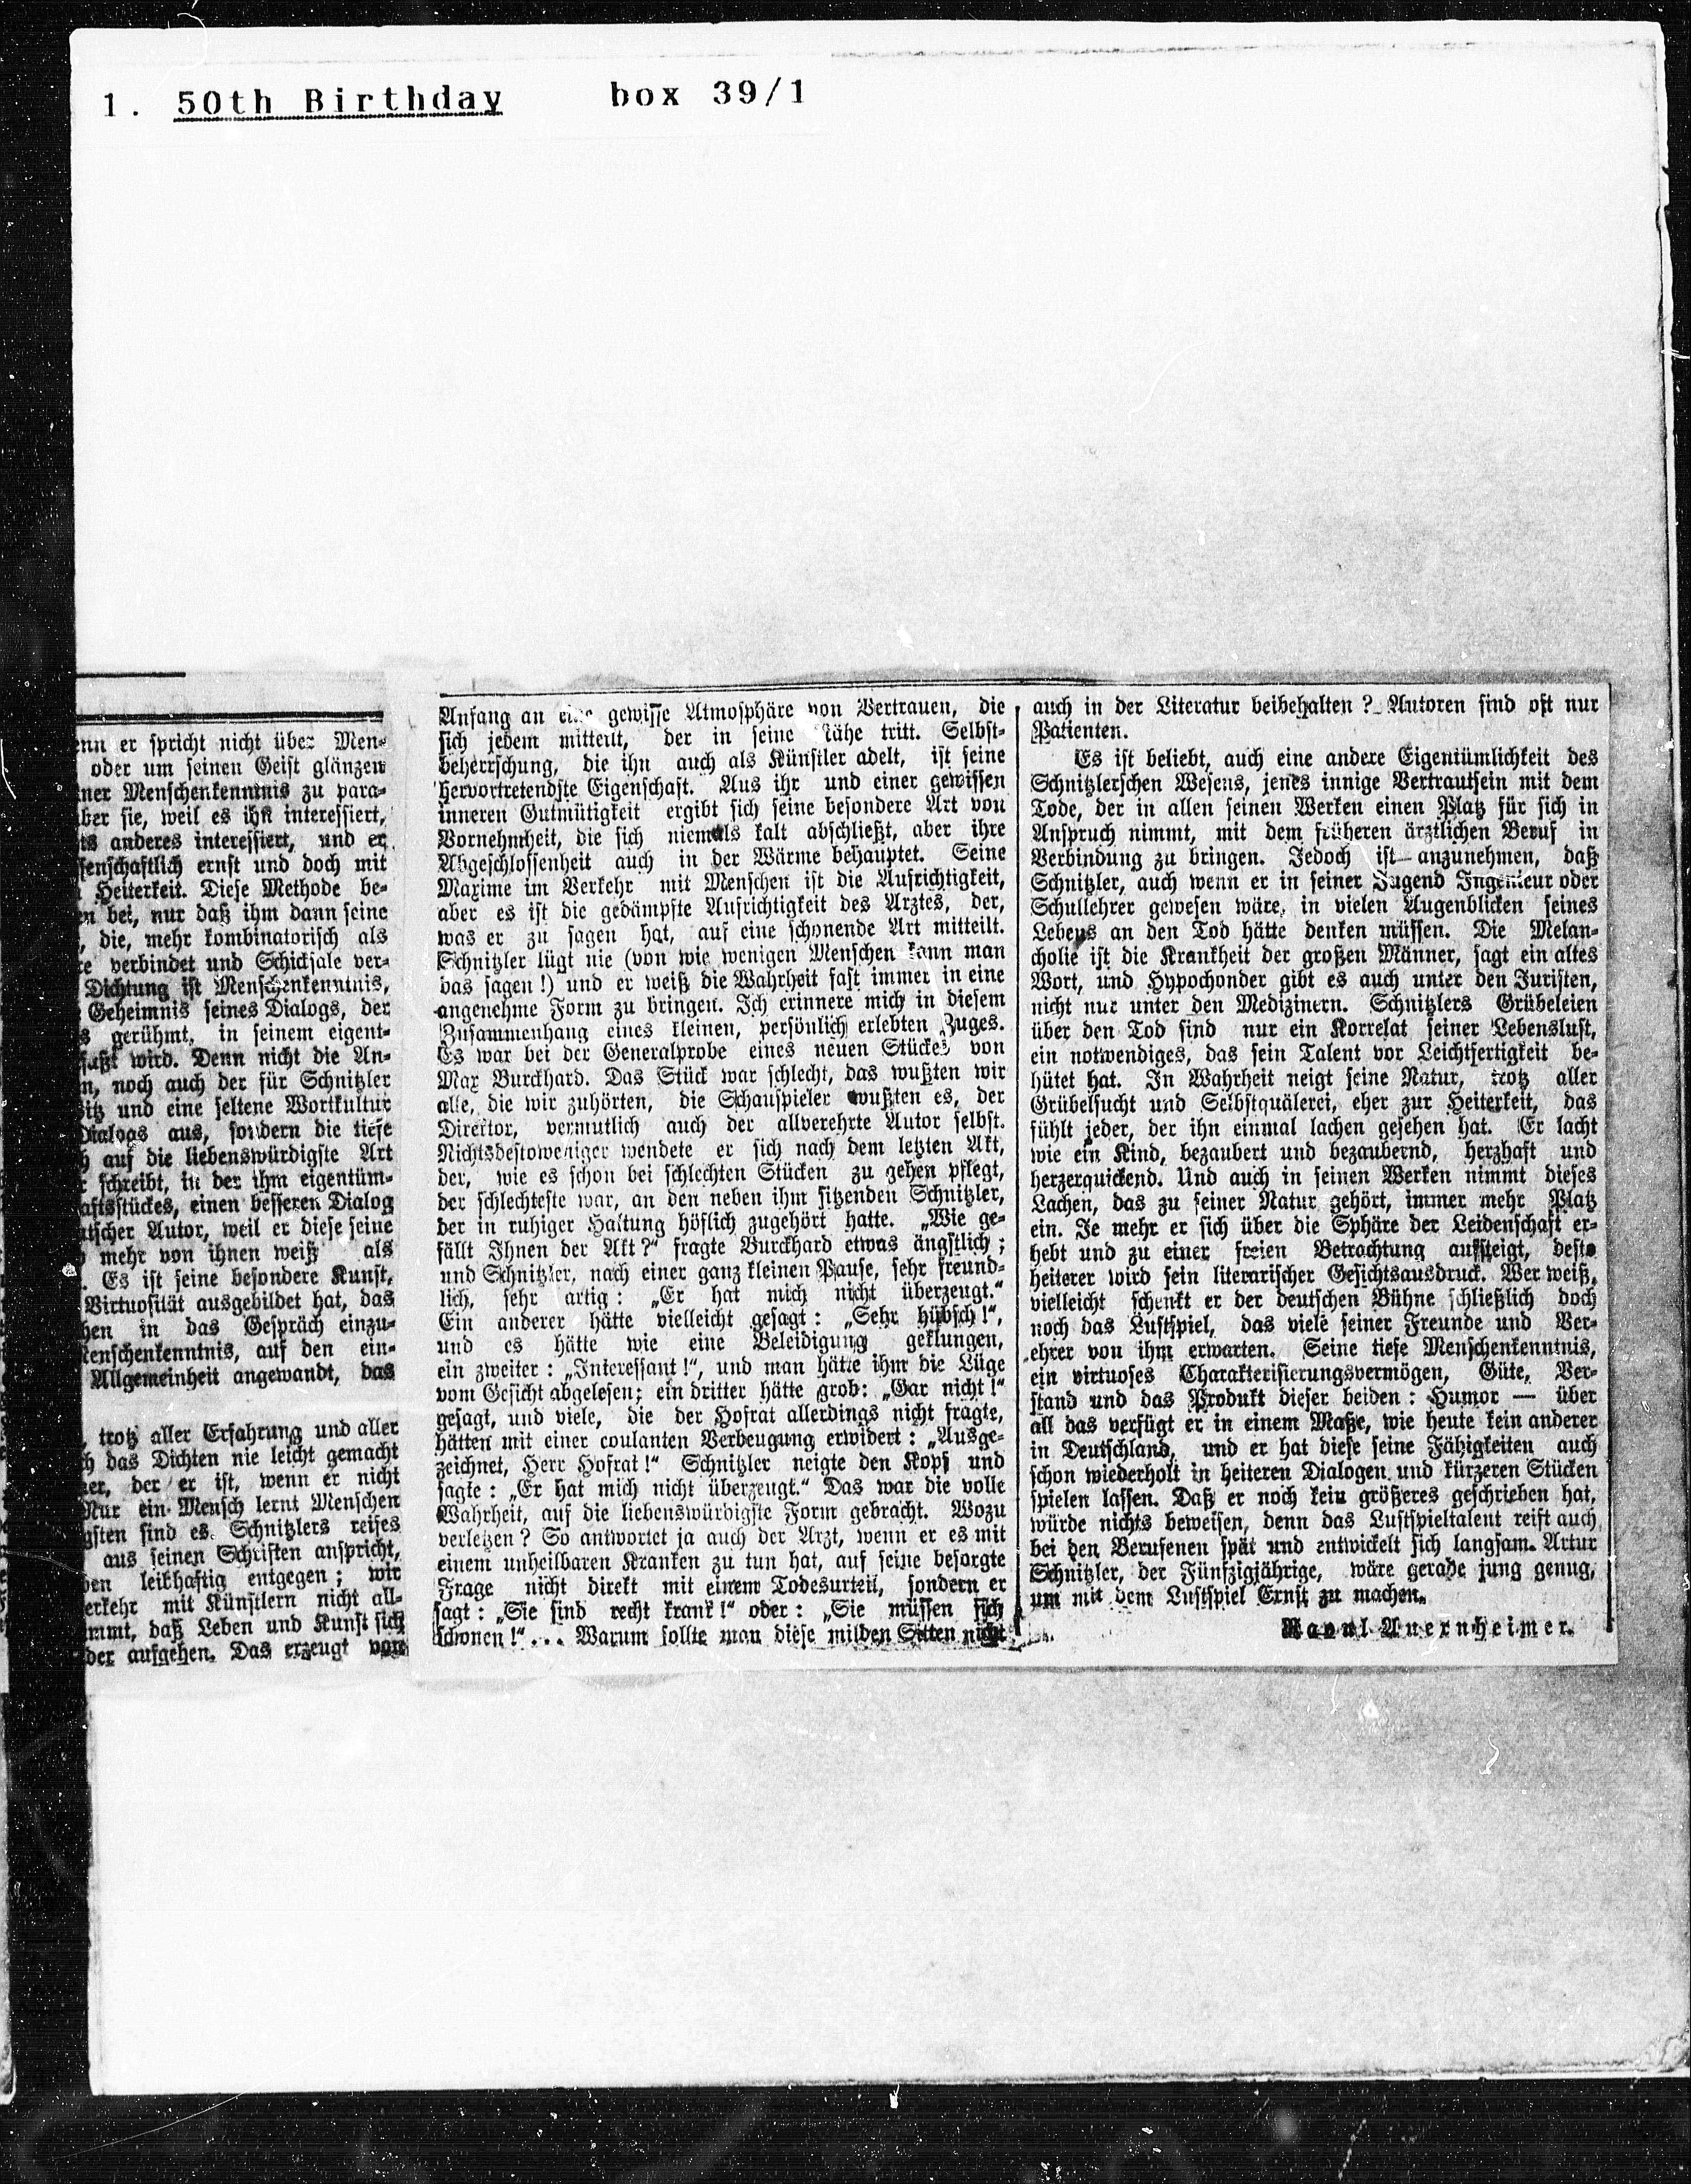 1. 50th Birthday box 39/1
er spricht nicht über Men-
oder um seinen Geist glänzen
Menschenkenntnis zu para-
sie, weil es ihn interessiert,
anderes interessiert, und er
ernst und doch mit
Heiterkeit. Diese Methode be-
bei, nur daß ihm dann seine
die, mehr kombinatorisch als
verbindet und Schicksale ver-
Dichtung ist Menschenkenntnis,
Geheimnis seines Dialogs, der
gerühmt, in seinem eigent-
wird. Denn nicht die An-
noch auch der für Schnitzler
und eine seltene Wortkultur
Dialogs aus, sondern die tiefe
auf die liebenswürdigste Art
schreibt, in der ihm eigentüm-
einen besseren Dialog
Autor, weil er diese seine
mehr von ihnen weiß als
Es ist seine besondere Kunst,
Virtuosität ausgebildet hat, das
in das Gespräch einzu-
auf den ein-
Allgemeinheit angewandt, das
trotz aller Erfahrung und aller
das Dichten nie leicht gemacht
der er ist, wenn er nicht
Nur ein Mensch lernt Menschen
sind es. Schnitzlers reifes
aus seinen Schriften anspricht,
leibhaftig entgegen; wir
mit Künstlern nicht all-
daß Leben und Kunst sich
aufgehen. Das erzeugt von
Anfang an eine gewisse Atmosphäre von Vertrauen, die
sich jedem mitteilt, der in seine Nähe tritt. Selbst-
beherrschung, die ihn auch als Künstler adelt, ist seine
hervortretendste Eigenschaft. Aus ihr und einer gewissen
inneren Gutmütigkeit ergibt sich seine besondere Art von
Vornehmheit, die sich niemals kalt abschließt, aber ihre
Abgeschlossenheit auch in der Wärme behauptet. Seine
Maxime im Verkehr mit Menschen ist die Aufrichtigkeit,
aber es ist die gedämpfte Aufrichtigkeit des Arztes, der,
was er zu sagen hat, auf eine schonende Art mitteilt.
Schnitzler lügt nie (von wie wenigen Menschen kann man
das sagen!) und er weiß die Wahrheit fast immer in eine
angenehme Form zu bringen. Ich erinnere mich in diesem
Zusammenhang eines kleinen, persönlich erlebten Zuges.
Es war bei der Generalprobe eines neuen Stückes von
Max Burckhard. Das Stück war schlecht, das wußten wir
alle, die wir zuhörten, die Schauspieler wußten es, der
Direktor, vermutlich auch der allverehrte Autor selbst.
Nichtsdestoweniger wendete er sich nach dem letzten Akt,
der, wie es schon bei schlechten Stücken zu gehen pflegt,
der schlechteste war, an den neben ihm sitzenden Schnitzler,
der in ruhiger Haltung höflich zugehört hatte. „Wie ge-
fällt Ihnen der Akt?“ fragte Burckhard etwas ängstlich;
und Schnitzler, nach einer ganz kleinen Pause, sehr freund-
lich, sehr artig: „Er hat mich nicht überzeugt.“
Ein anderer hätte vielleicht gesagt: „Sehr hübsch!“,
und es hätte wie eine Beleidigung geklungen,
ein zweiter: „Interessant!“, und man hätte ihm die Lüge
vom Gesicht abgelesen; ein dritter hätte grob: „Gar nicht!“
gesagt, und viele, die der Hofrat allerdings nicht fragte,
hätten mit einer coulanten Verbeugung erwidert: „Ausge-
zeichnet, Herr Hofrat!“ Schnitzler neigte den Kopf und
sagte: „Er hat mich nicht überzeugt.“ Das war die volle
Wahrheit, auf die liebenswürdigste Form gebracht. Wozu
verletzen? So antwortet ja auch der Arzt, wenn er es mit
einem unheilbaren Kranken zu tun hat, auf seine besorgte
Frage nicht direkt mit einem Todesurteil, sondern er
sagt: „Sie sind recht krank!“ oder: „Sie müssen sich
schonen!“... Warum sollte man diese milden Sitten nicht
auch in der Literatur beibehalten? Autoren sind oft nur
Patienten.
Es ist beliebt, auch eine andere Eigentümlichkeit des
Schnitzlerschen Wesens, jenes innige Vertrautsein mit dem
Tode, der in allen seinen Werken einen Platz für sich in
Anspruch nimmt, mit dem früheren ärztlichen Beruf in
Verbindung zu bringen. Jedoch ist anzunehmen, daß
Schnitzler, auch wenn er in seiner Jugend Ingenieur oder
Schullehrer gewesen wäre, in vielen Augenblicken seines
Lebens an den Tod hätte denken müssen. Die Melan-
cholie ist die Krankheit der großen Männer, sagt ein altes
Wort, und Hypochonder gibt es auch unter den Juristen,
nicht nur unter den Medizinern. Schnitzlers Grübeleien
über den Tod sind nur ein Korrelat seiner Lebenslust,
ein notwendiges, das sein Talent vor Leichtfertigkeit be-
hütet hat. In Wahrheit neigt seine Natur, trotz aller
Grübelsucht und Selbstquälerei, eher zur Heiterkeit, das
fühlt jeder, der ihn einmal lachen gesehen hat. Er lacht
wie ein Kind, bezaubert und bezaubernd, herzhaft und
herzerquickend. Und auch in seinen Werken nimmt dieses
Lachen, das zu seiner Natur gehört, immer mehr Platz
ein. Je mehr er sich über die Sphäre der Leidenschaft er-
hebt und zu einer freien Betrachtung aufsteigt, desto
heiterer wird sein literarischer Gesichtsausdruck. Wer weiß,
vielleicht schenkt er der deutschen Bühne schließlich doch
noch das Lustspiel, das viele seiner Freunde und Ver-
ehrer von ihm erwarten. Seine tiefe Menschenkenntnis,
ein virtuoses Charakterisierungsvermögen, Güte, Ver-
stand und das Produkt dieser beiden: Humor — über
all das verfügt er in einem Maße, wie heute kein anderer
in Deutschland, und er hat diese seine Fähigkeiten auch
schon wiederholt in heiteren Dialogen und kürzeren Stücken
spielen lassen. Daß er noch kein größeres geschrieben hat,
würde nichts beweisen, denn das Lustspieltalent reift auch
bei den Berufenen spät und entwickelt sich langsam. Artur
Schnitzler, der Fünfzigjährige, wäre gerade jung genug,
um mit dem Lustspiel Ernst zu machen.
Raoul Auernheimer.